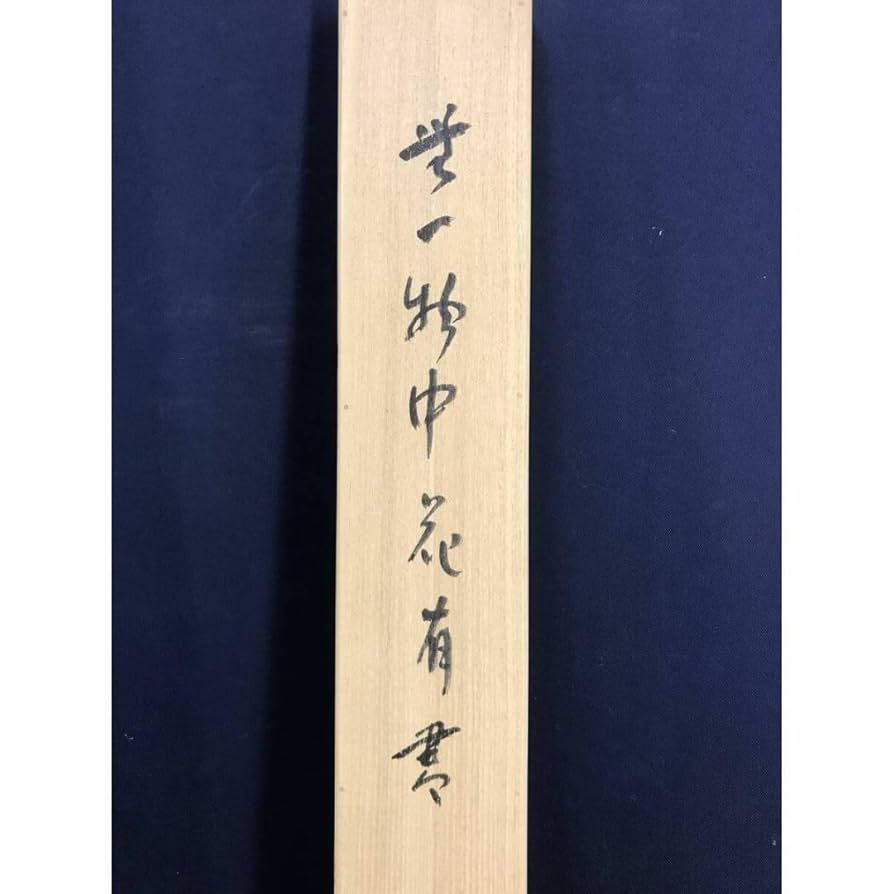 無一物中花有